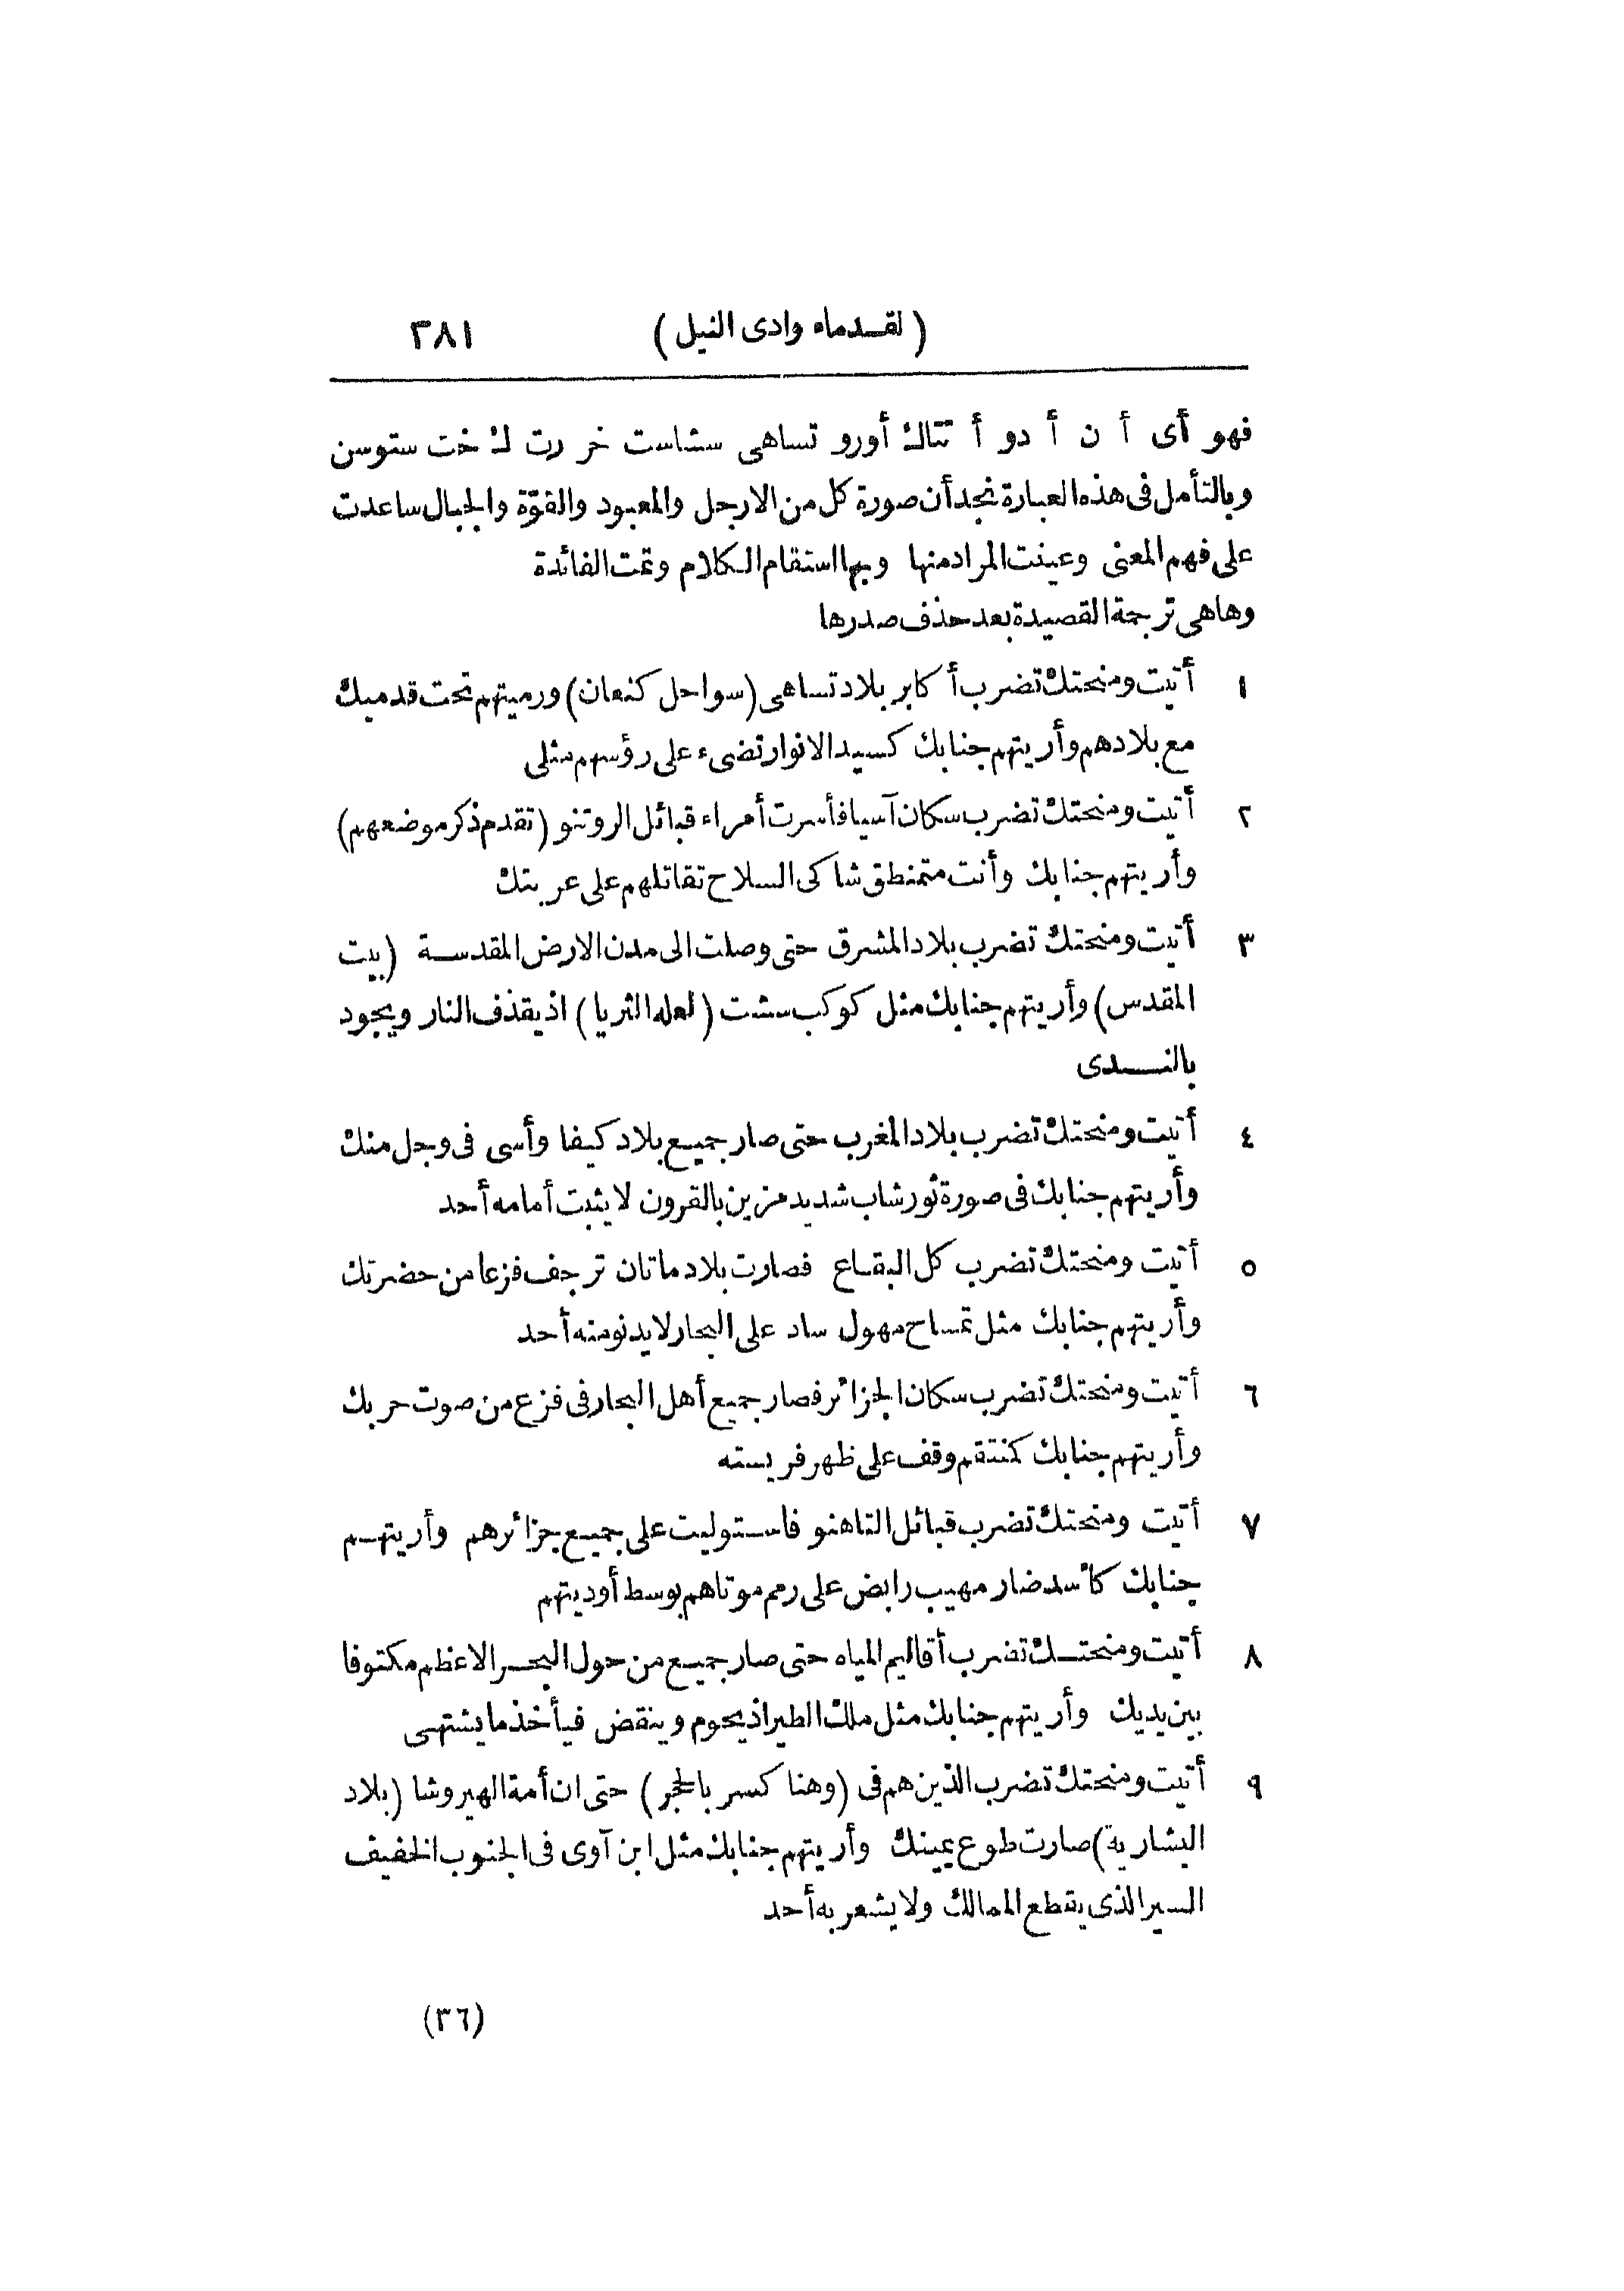 ( لقدماء وادى النيل ) ٣٨١
فهو أى أ ن أ دو أ تتاك أورو تساهى سشاست خر رت ك خت ستوسن
وبالتأمل فى هذه العبارة نجد أن صورة كل من الارجل والمعبود والقوّة والجبال ساعدت
على فهم المعنى وعينت المراد منها وبها استقام الكلام وتمت الفائدة
وهاهى ترجمة القصيدة بعد حذف صدرها
١ أتيت ومنحتك تضرب أكابر بلاد تساهى (سواحل كنعان) ورميتهم تحت قدميك
مع بلادهم وأريتهم جنابك كسيد الانوار تضىء على رؤسهم مثلى
٢ أتيت ومنحتك تضرب سكان آسيا فأسرت أمراء قبائل الروتنو (تقدم ذكر موضعهم)
وأريتهم جنابك وأنت متمنطق شاكى السلاح تقاتلهم على عربتك
٣ أتيت ومنحتك تضرب بلاد المشرق حتى وصلت الى مدن الارض المقدسة (بيت
المقدس) وأريتهم جنابك مثل كوكب سشت (لعله الثريا) اذ يقذف النار ويجود
بالندى
٤ أتيت ومنحتك تضرب بلاد المغرب حتى صار جميع بلاد كيفا وأسى فى وجل منك
وأريتهم جنابك فى صورة ثور شاب شديد مزين بالقرون لا يثبت أمامه أحد
٥ أتيت ومنحتك تضرب كل البقاع فصارت بلاد ماتان ترجف فزعا من حضرتك
وأريتهم جنابك مثل تمساح مهول ساد على البحار لا يدنو منه أحد
٦ أتيت ومنحتك تضرب سكان الجزائر فصار جميع أهل البحار فى فزع من صوت حربك
وأريتهم جنابك كمنتقم وقف على ظهر فريسته
٧ أتيت ومنحتك تضرب قبائل التاهنو فاستوليت على جميع جزائرهم وأريتهم
جنابك كأسد ضار مهيب رابض على رمم موتاهم بوسط أوديتهم
٨ أتيت ومنحتك تضرب أقاليم المياه حتى صار جميع من حول البحر الاعظم مكتوفا
بين يديك وأريتهم جنابك مثل ملك الطير اذ يحوم وينقض فيأخذ ما يشتهى
٩ أتيت ومنحتك تضرب الذين هم فى (وهنا كسر بالحجر) حتى ان أمة الهيروشا (بلاد
البشارية) صارت طوع يمينك وأريتهم جنابك مثل ابن آوى فى الجنوب الخفيف
السير الذى يقطع الممالك ولا يشعر به أحد
(٣٦)